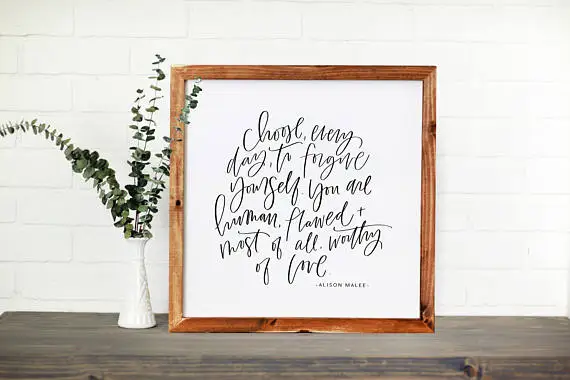 Choose, every
day, to forgive
yourself. You are
human, flawed +
most of all, worthy
of love.
-ALISON MALEE-